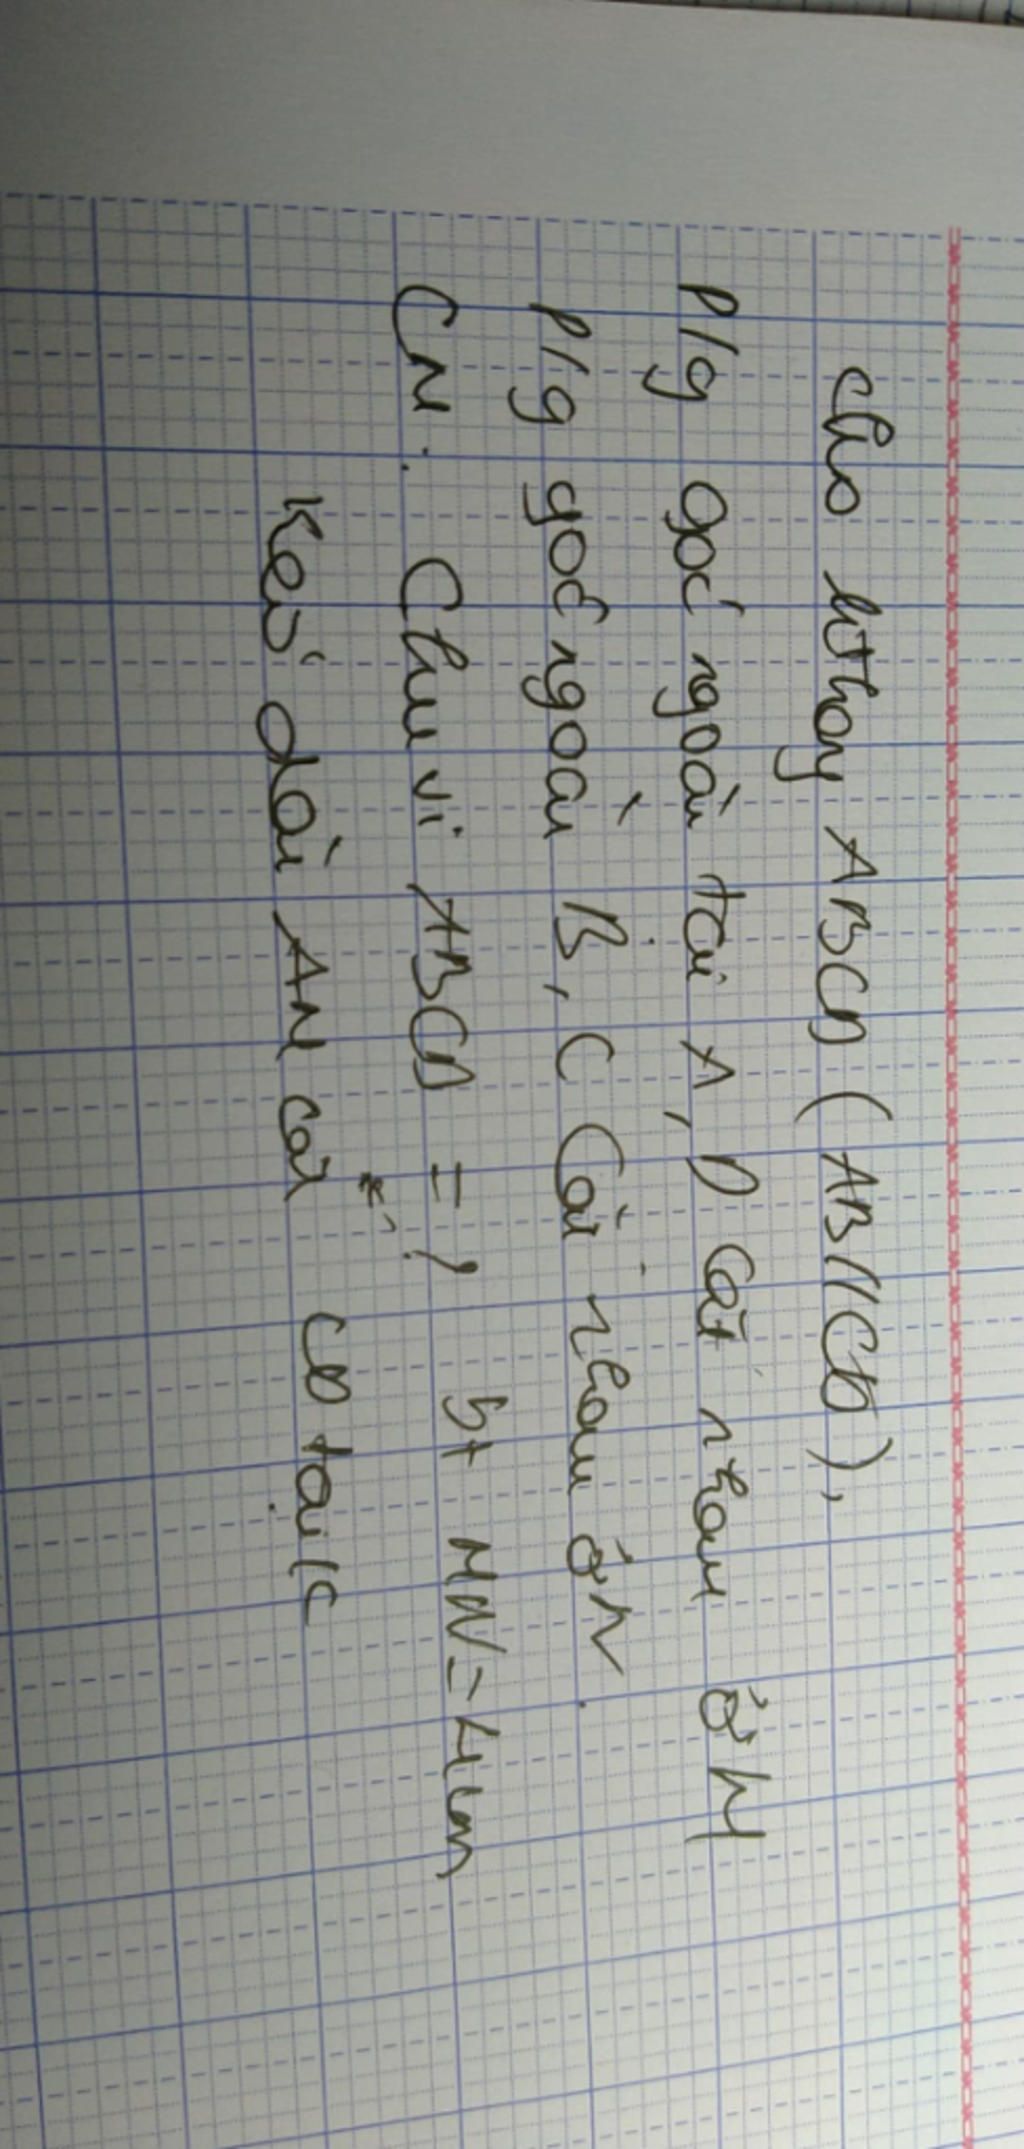 cho hthang ABCD (AB//CD),
p/g góc ngoài tại A, D cắt nhau ở M
p/g góc ngoài B, C cắt nhau ở N.
CM. Chu vi ABCD = ? bt MN = 4cm
Kéo dài AM cắt CD tại K